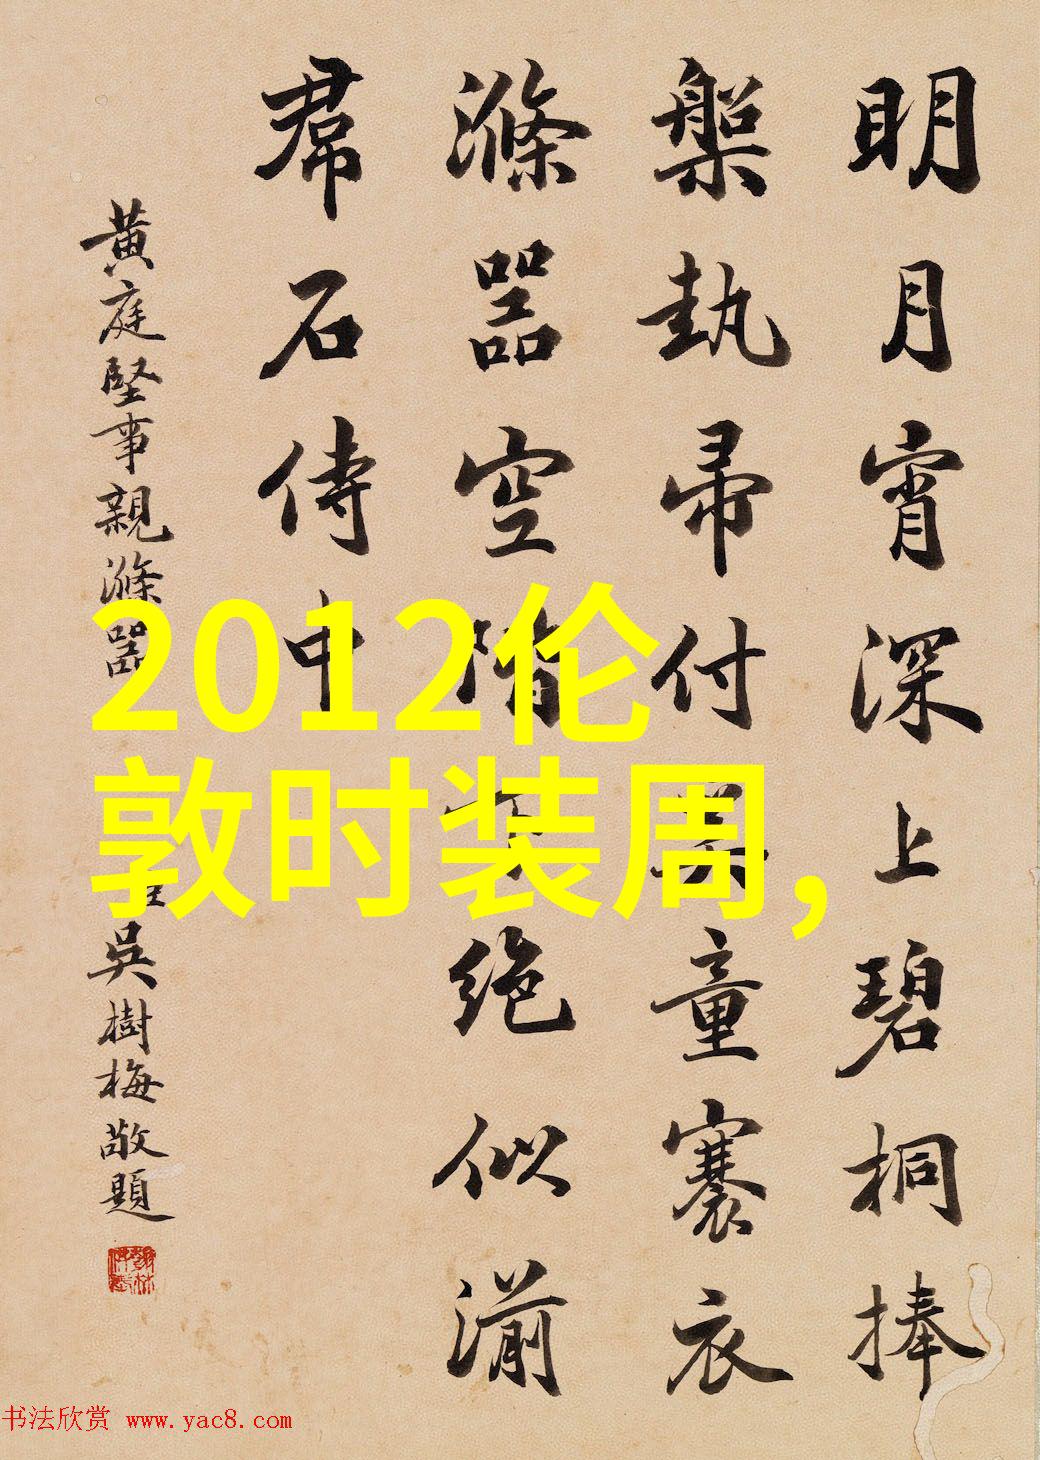 明月宵深上碧桐捧
槃執帚付童褰衣
滌器空階下絕似湔
帬石侍中
黃庭堅事親滌器
吳樹梅敬題
2012伦
敦时装周,
书法欣赏 www.yac8.com